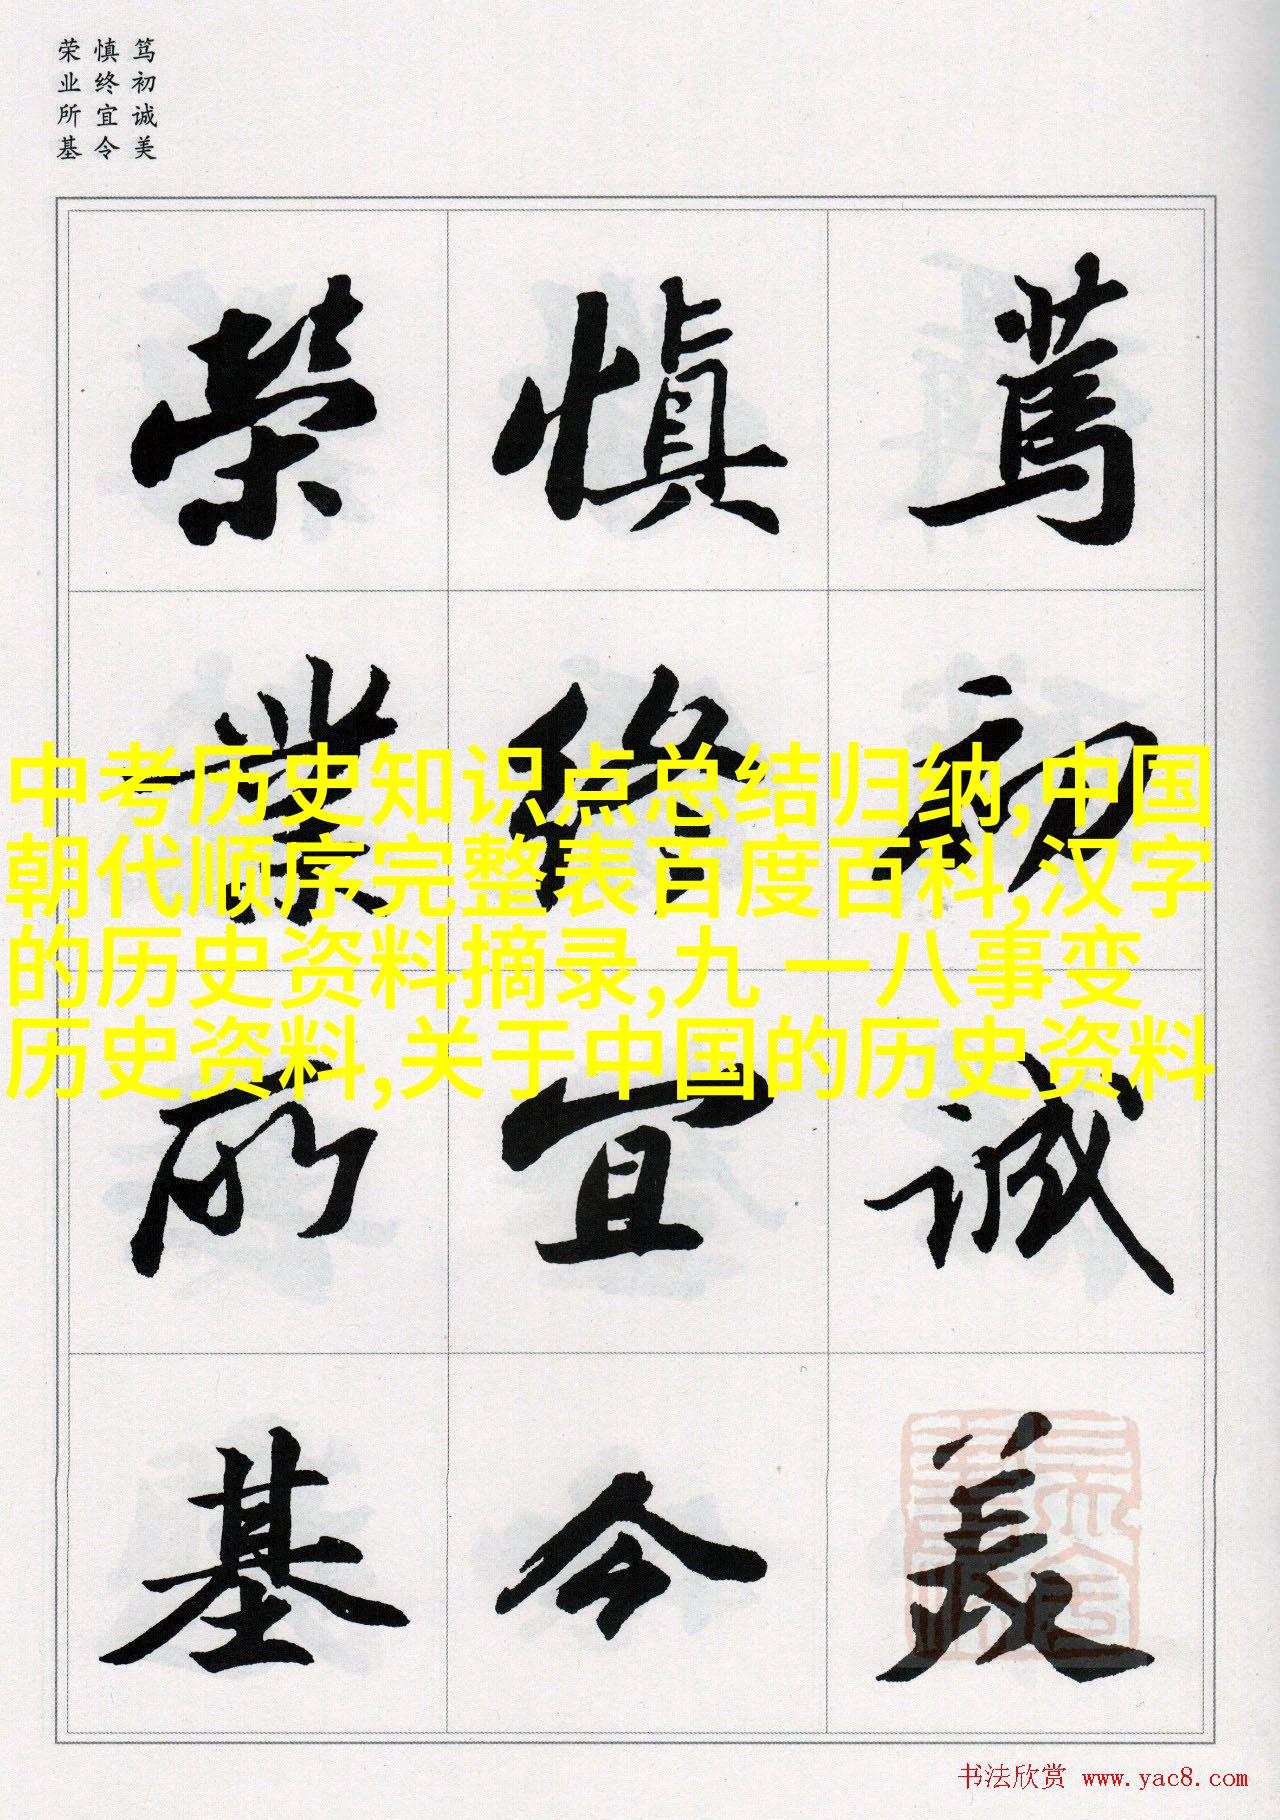 笃初诚美
慎终宜令
荣业所基
篤初誠美
慎終宜令
榮業所基
中考历史知识点总结归纳,中国
朝代顺序完整表百度百科,汉字
的历史资料摘录,九一八事变
历史资料,关于中国的历史资料
书法欣赏 www.yac8.com